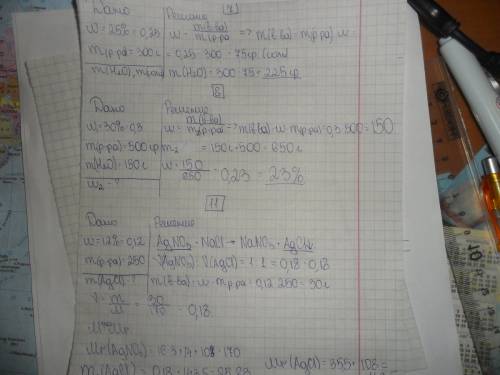 7
Дано Решение
w = 25% = 0,25 w = m(в-ва) / m(р-ра) => m(в-ва) = m(р-ра) · w =
m(р-ра) = 300 г = 0,25 · 300 = 75 гр
m(H2O), m m(H2O) = 300 - 75 = 225 гр
8
Дано Решение
w = 30% = 0,3 w = m(в-ва) / m(р-ра) => m(в-ва) = w · m(р-ра) = 0,3 · 500 = 150
m(р-ра) = 500 гр m2 = 150 г + 500 = 650 г
m(H2O) = 150 г w = 150 / 650 = 0,23 = 23%
w2 - ?
11
Дано Решение
w = 12% = 0,12 AgNO3 + NaCl → NaNO3 + AgCl↓
m(р-ра) = 250 V(AgNO3) : V(AgCl) = 1 : 1 = 0,18 : 0,18
m(AgCl) - ? m(в-ва) = w · m р-ра = 0,12 · 250 = 30 г
V = m / M = 30 / 170 = 0,18
M = Mr
Mr(AgNO3) = 16·3 + 14 + 108 = 170
Mr(AgCl) = 35,5 + 108 =
m(AgCl) = 0,18 · 143,5 = 25,83